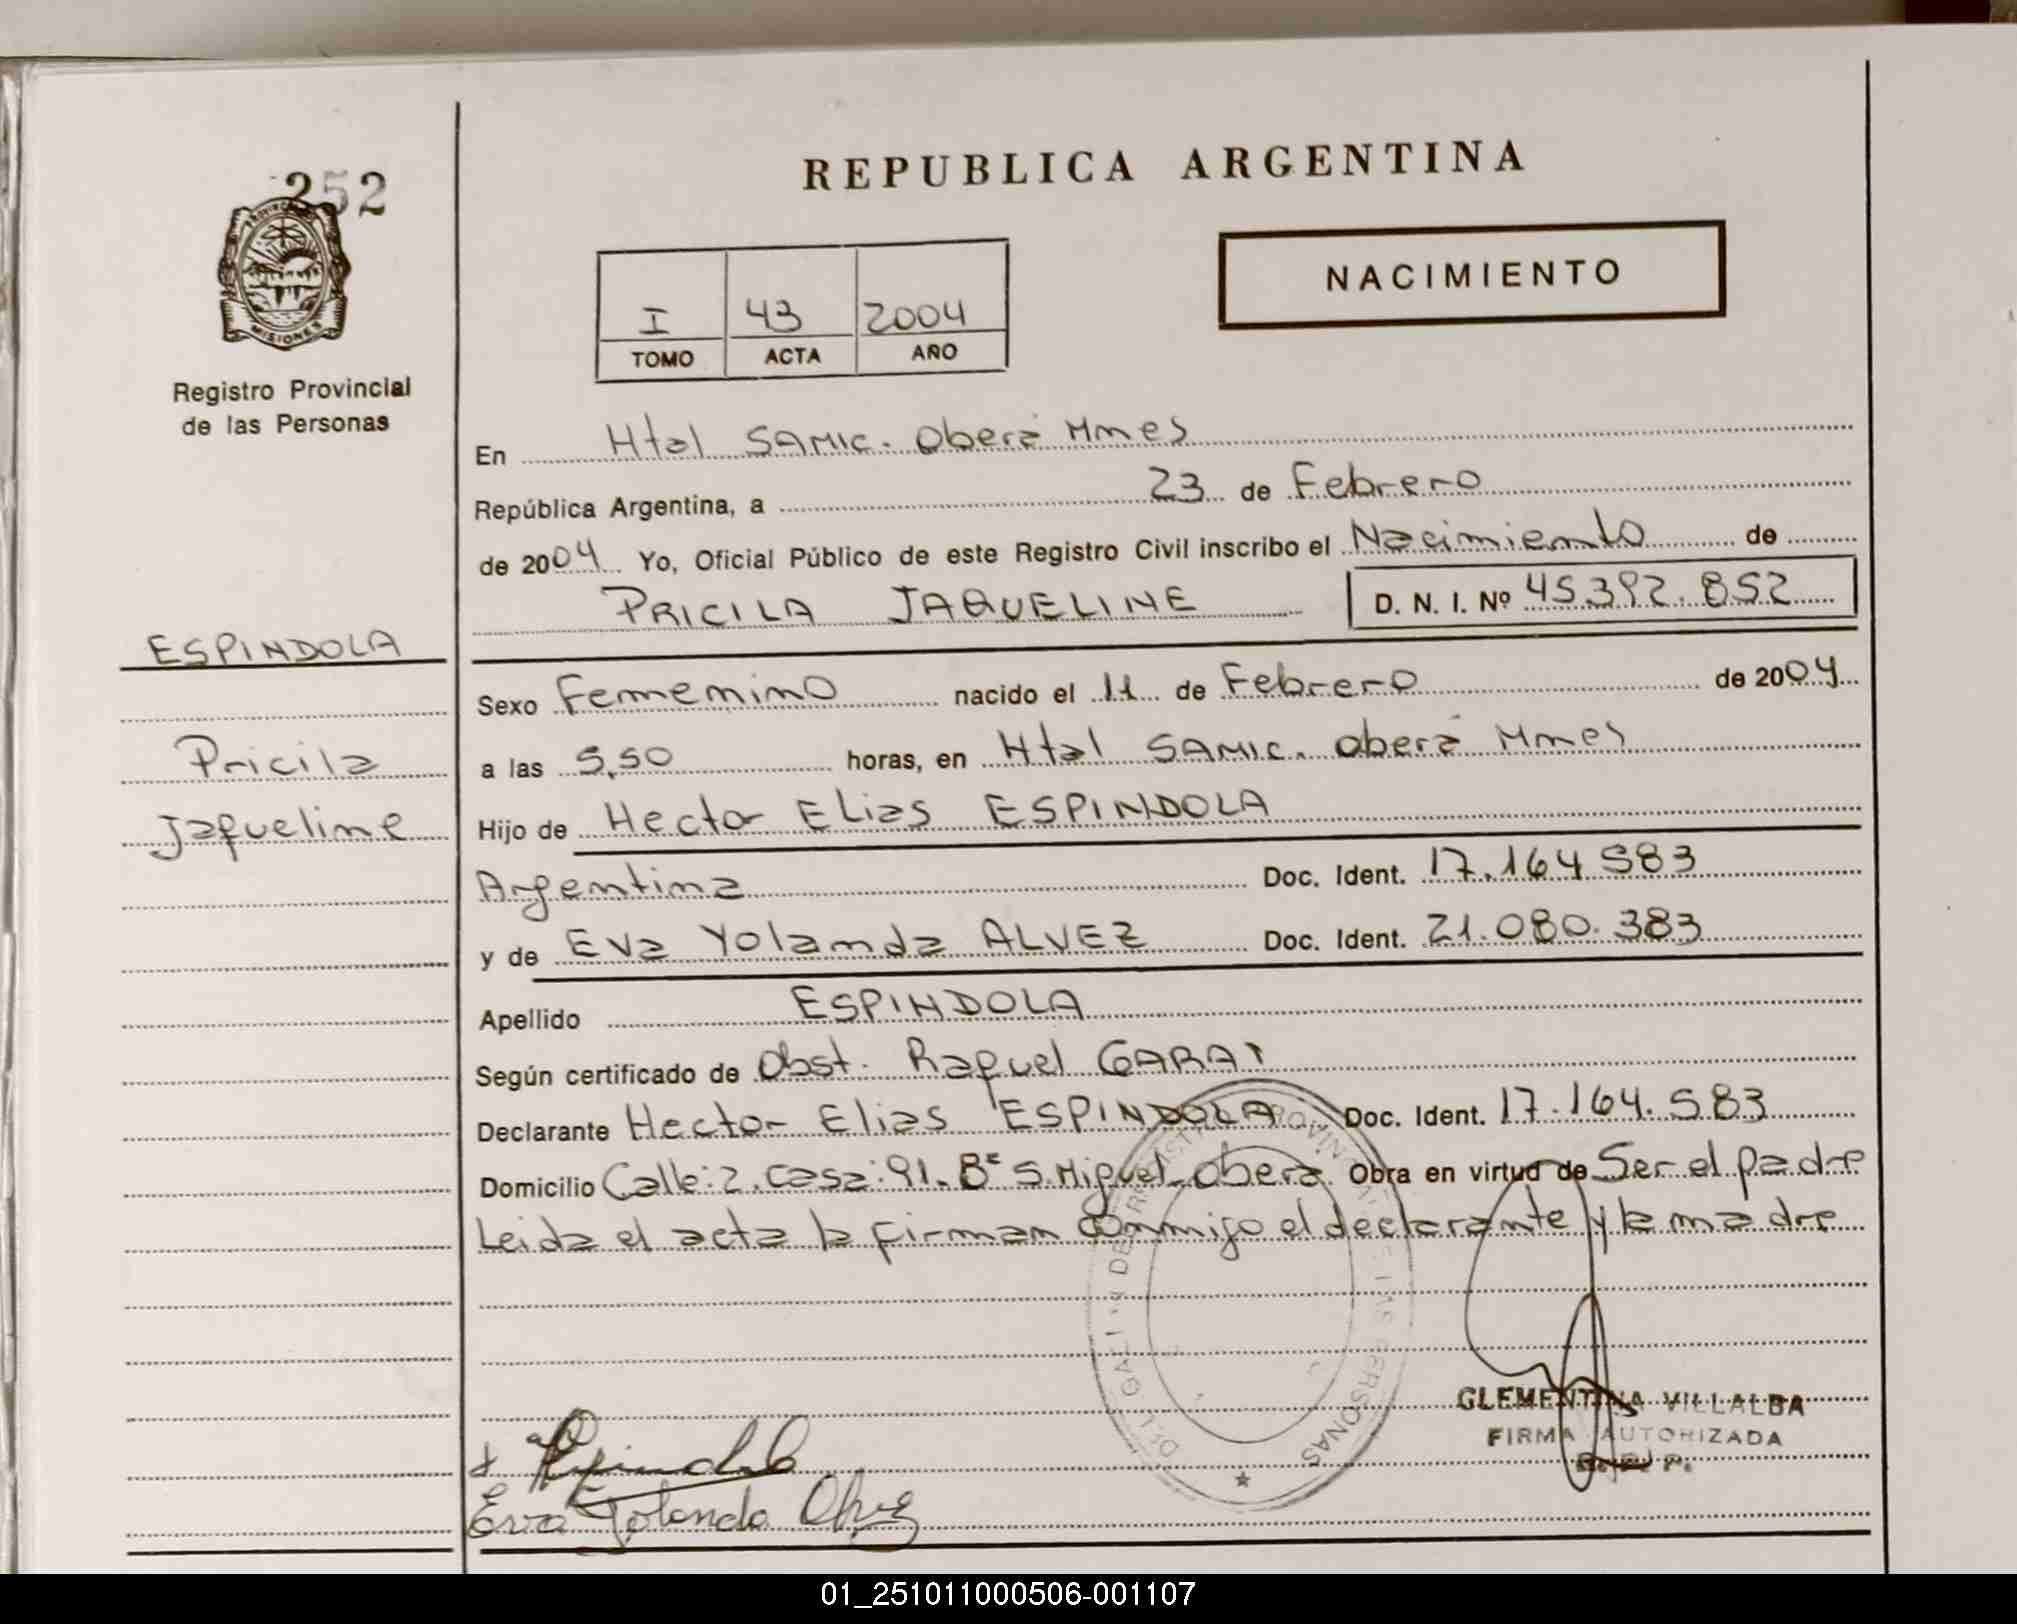 252
PROVINCIA
MISIONES
Registro Provincial
de las Personas
REPUBLICA ARGENTINA
NACIMIENTO
I 43 2004
TOMO ACTA AÑO
En Htal SAMIC. Oberá Mnes
República Argentina, a 23 de Febrero
de 2004 Yo, Oficial Público de este Registro Civil inscribo el Nacimiento de
PRICILA JAQUELINE D. N. I. Nº 45.392.852
ESPINDOLA
Pricila
Jaqueline
Sexo Femenino nacido el 11 de Febrero de 2004
a las 5,50 horas, en Htal SAMIC. Oberá Mnes
Hijo de Hector Elias ESPINDOLA
Argentina Doc. Ident. 17.164.583
y de Eva Yolanda ALVEZ Doc. Ident. 21.080.383
Apellido ESPINDOLA
Según certificado de Obst. Raquel GARAY
Declarante Hector Elias ESPINDOLA Doc. Ident. 17.164.583
Domicilio Calle: 2. Casa: 91. Bº S. Miguel. Oberá. Obra en virtud de Ser el padre
Leida el acta la firman conmigo el declarante y la madre
REGISTRO PROVINCIAL DE LAS PERSONAS
CLEMENTINA VILLALBA
FIRMA AUTORIZADA
R. P. P.
Espindola
Eva Yolanda Alvez
01_251011000506-001107